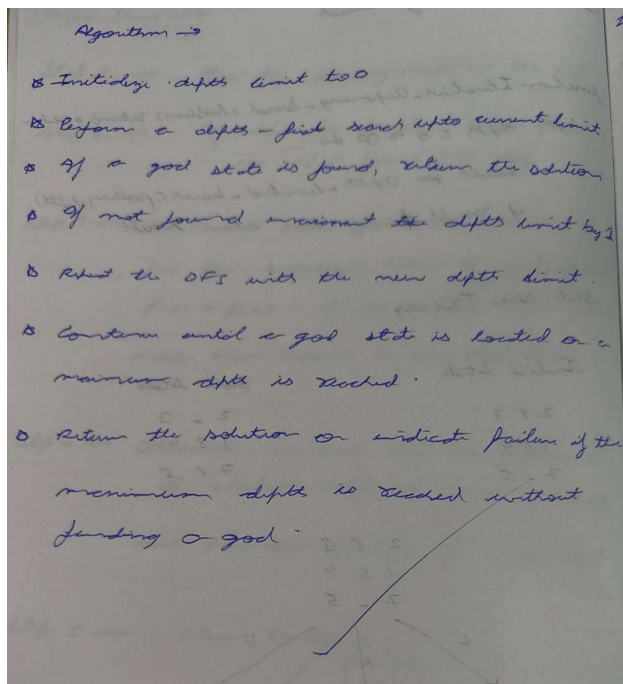 Algorithm →
Initialize depth limit to 0
Perform a depth-first search upto current limit.
If a goal state is found, return the solution
If not found increment the depth limit by 1
Repeat the DFS with the new depth limit.
Continue until a goal state is located or a
maximum depth is reached.
Return the solution or indicate failure if the
maximum depth is reached without
finding a goal.